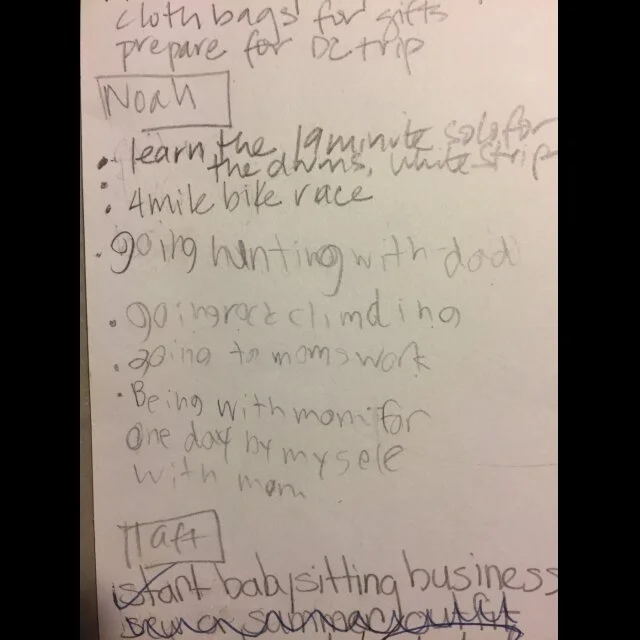 cloth bags for gifts
prepare for DC trip
Noah
• learn the 19 minute solo for
the drums, white strip
• 4 mile bike race
• going hunting with dad
• going rock climding
• going to moms work
• Being with mom for
one day by my sele
with mom
Taft
start babysitting business
sew a